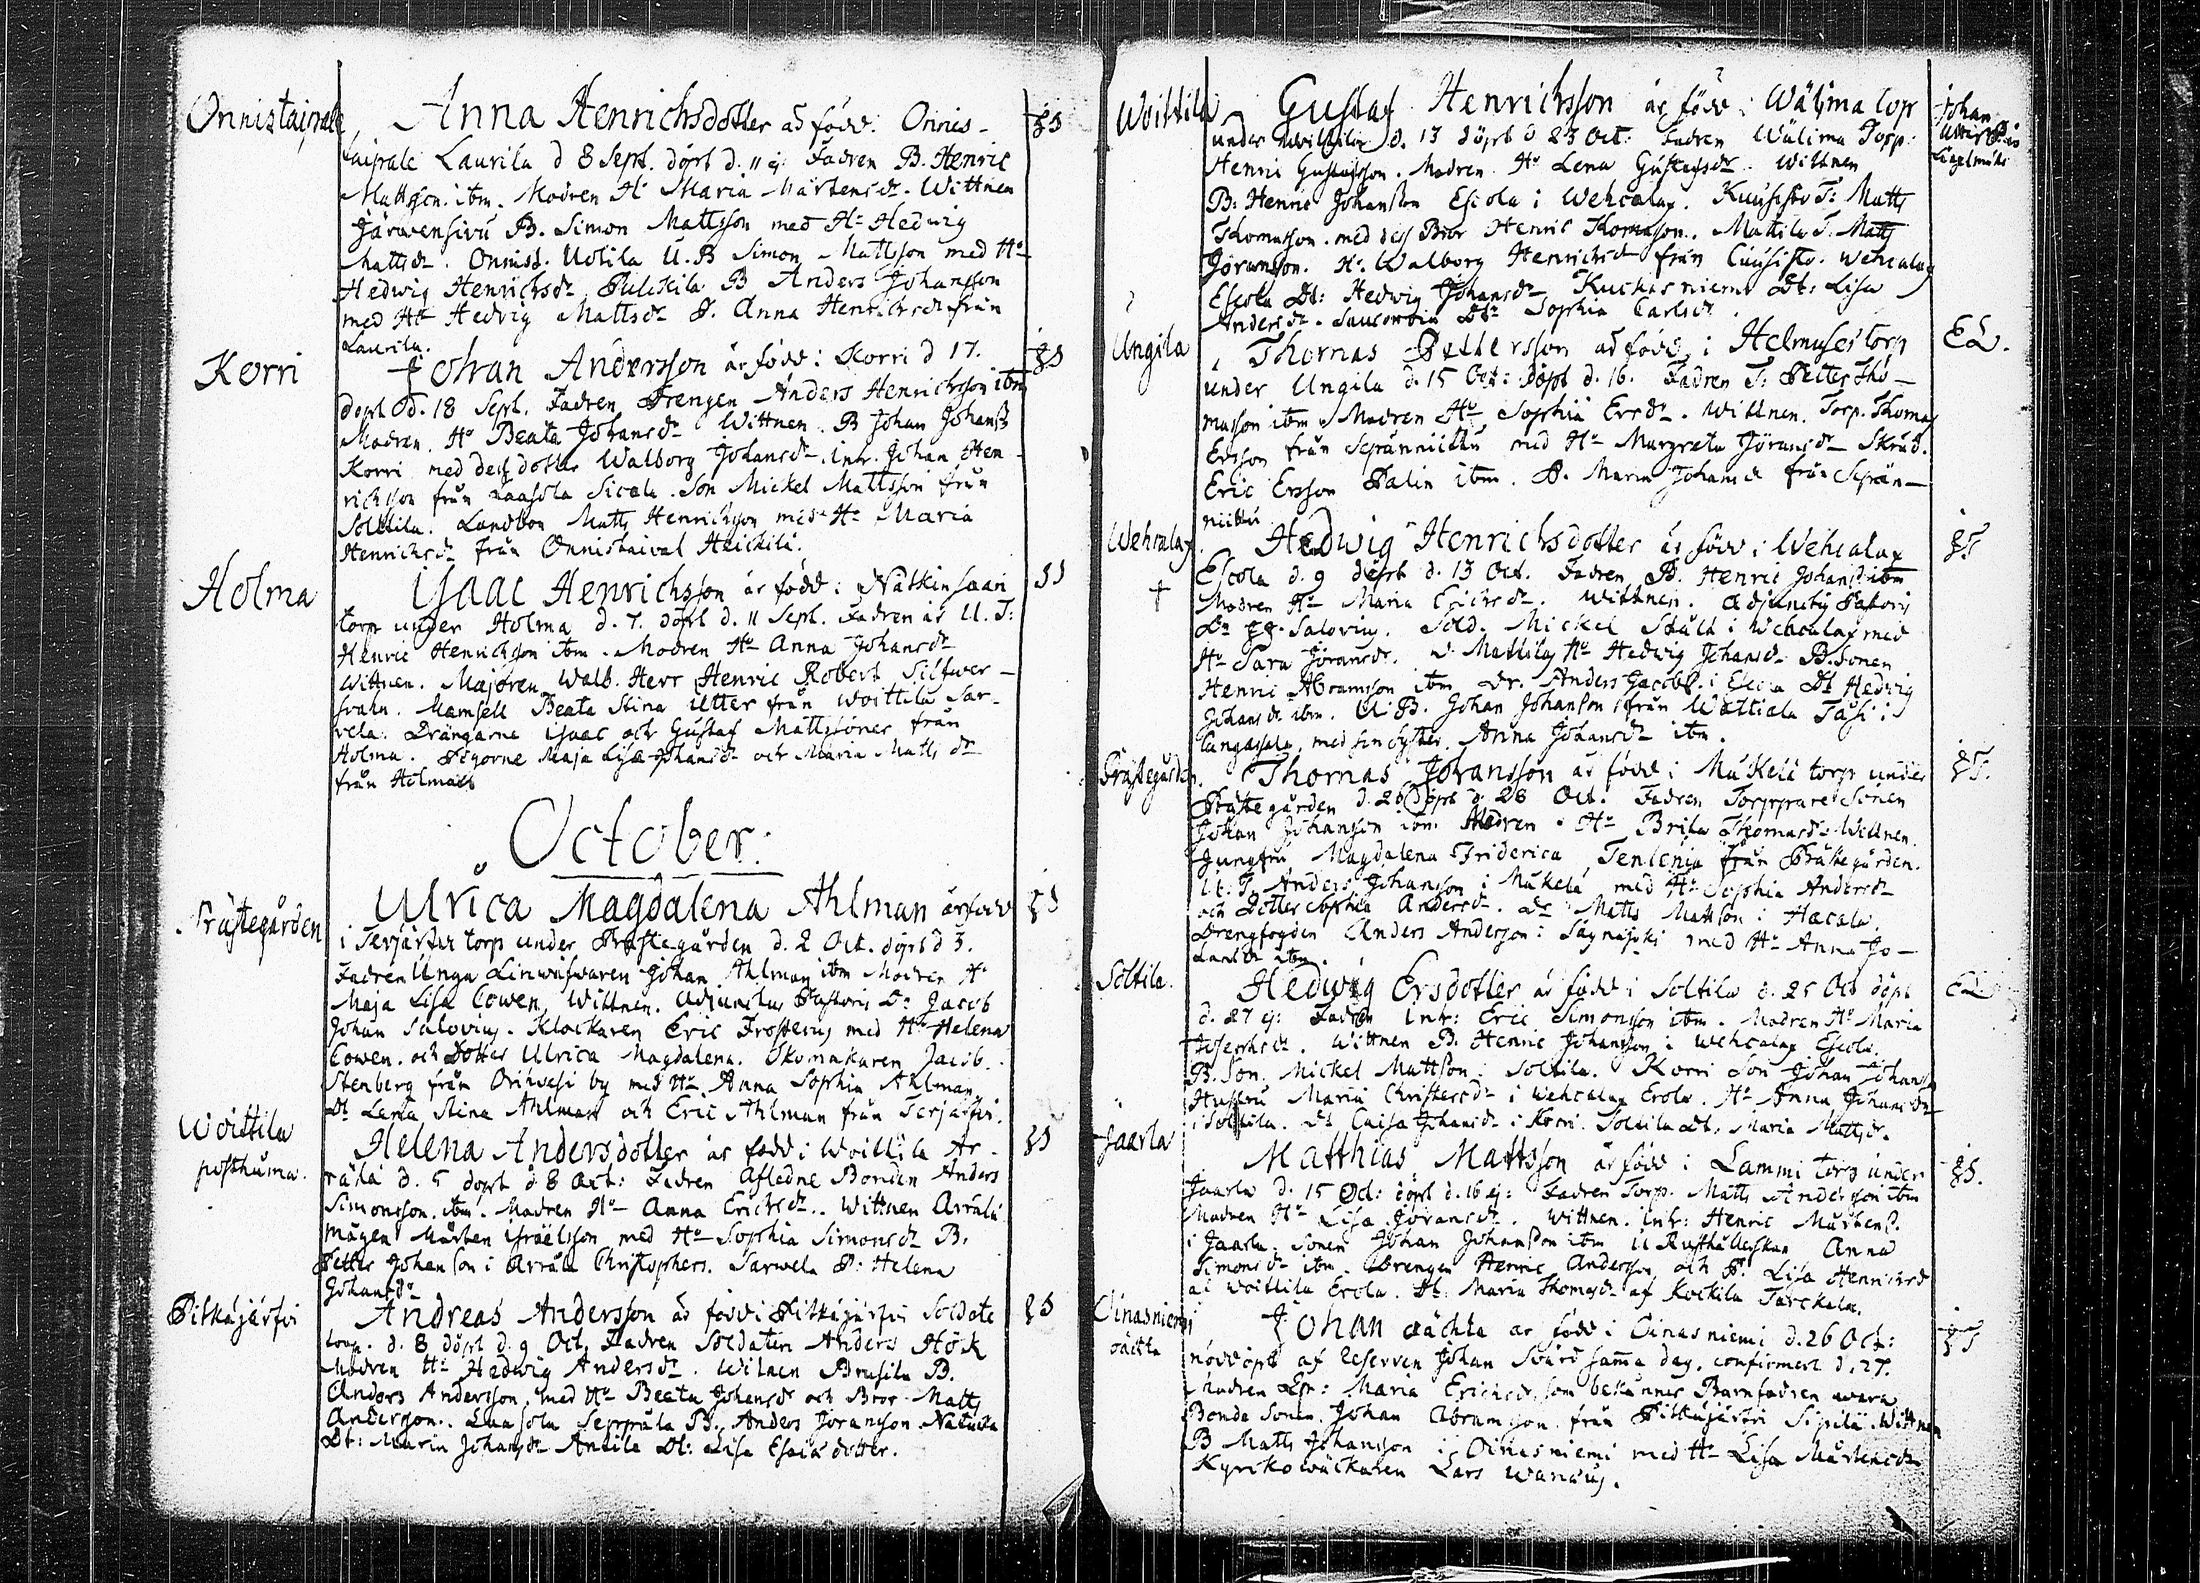 Onnistaipale, Anna Henrichsdotter är född i Onnis- JS
taipale Laurila d 8 Sept. döpt d. 11 ej. Fadren B. Henric
Mattsson ibm. Modren Hu Maria Mårtensdr. Wittnen
Järwensivu B. Simon Mattsson med Hu Hedwig
Mattsdr. Onnist. Uotila U. B Simon Mattsson med Hu
Hedwig Henrichsdr Pulckila B Anders Johansson
med Hu Hedvig Mattsdr P. Anna Henrichsdr från
Laurila.
Korri Johan Andersson är född i Korri d 17. JS
döpt d. 18 Sept. Fadren Drengen Anders Henrichsson ibm
Modren Hu Beata Johansdr Wittnen B Johan Johanss
Korri med dess dotter Walborg Johansdr. Inh. Johan Hen-
richsson från Laasola Sicala. Son Mickel Mattsson från
Solttila. Landbon Matts Henrichsson med Hu Maria
Henrichsdr från Onnistaival Heickilä.
Holma Isaac Henrichsson är född i Nätkinsaari JS
torp under Holma d. 7. döpt d. 11 Sept. Fadren är U. T:
Henric Henrichsson ibm. Modren Hu Anna Johansdr
Wittnen. Majoren Walb. Herr Henric Robert Silfwer-
svahn. Mamsell Beata Stina Utter från Woittila Sar-
vela. Drängarne Isaac och Gustaf Mattssöner från
Holma. Pigorne Maja Lisa Johansdr och Maria Matts dr
från Holma
October.
Prästegården Ulrica Magdalena Ahlman är född JS
i Terjärfvi torp under Prästegården d. 2 Oct. döpt d 3.
Fadren Unga Linwäfwaren Johan Ahlman ibm Modren Hu
Maja Lisa Cowen, Wittnen. Adjunctus Pastoris Dn Jacob
Johan Salovius. Klockaren Eric Frosterus med Hu Helena
Cowen. och Dotter Ulrica Magdalena. Skomakaren Jacob
Stenberg från Orihvesi by med Hu Anna Sophia Ahlman
Dt Lena Stina Ahlman och Eric Ahlman från Terjärfvi.
Woittila Helena Andersdotter är född i Woittila Ar- JS
posthuma. rälä d. 5 döpt d 8 Oct: Fadren Afledne Bonden Anders
Simonsson ibm. Modren Hu Anna Erichsdr. Wittnen Arrälä
mågen Mårten Israelsson med Hu Sophia Simonsdr B.
Petter Johansson i Arrälä Christophers. Sarwela P: Helena
Johansdr
Pitkäjärfvi Andreas Andersson är född i Pitkäjärfvi Soldate JS
torp. d. 8 döpt d. 9 Oct. Fadren Soldaten Anders Hök
Modren Hu Hedwig Andersdr. Witnen Brusila B.
Anders Andersson med Hu Beata Johansdr och Bror Matts
Andersson. Laasola Seppälä B. Anders Jöransson
Dt: Maria Johansdr Antila Dt: Lisa Esaiädotter.
Woittila Gustaf Henrichsson är född i Wälima torp Johan
under Woittila d. 13 döpt d 23 Oct: Fadren Wälima Torp.
Henric Gustafsson. Modren Hu Lena Gustafsdr. Wittnen
B: Henric Johansson Escola i Wehcalax. Kuusisto T: Matts
Thomasson med dess Bror Henric Thomasson. Mattila T. Matts
Jöransson. Hu Walborg Henrichsdr från Cuusisto. Wehcalax
Escola Dt: Hedwig Johansdr Kuckasniemi Dt: Lisa
Andersdr. Sophia Carlsdr.
Ungila Thomas Pettersson är född i Helmisestorp EL.
under Ungila d. 15 Oct: döpt d. 16. Fadren T: Petter Tho-
masson ibm Modren Hu Sophia Ersdr. Wittnen. Torp. Thomas
Ersson från Seppänniittu med Hu Margreta Jöransdr Skräd.
Eric Ersson Palin ibm. P. Maria Johansdr från Seppän-
niittu
Wehcalax Hedwig Henrichsdotter är född i Wehcalax JS
Escola d. 9 döpt d. 13 Oct. Fadren B. Henric Johanss ibm
† Modren Hu Maria Erichsdr. Wittnen. Adjunctus Pastoris
Dn JJ. Salovius. Sold. Mickel Ståhl i Wehcalax med
Hu Sara Jöransdr. Mattila Hu Hedwig Johansdr B. Sonen
Henric Abramsson ibm Dr. Anders Jacobs. i Escola Dt Hedwig
Johansdr ibm. U: B. Johan Johansson från Wättiala Passi i
Cangasala, med sin syster Anna Johansdr ibm.
Prästegården. Thomas Johansson är född i Mäkelä torp under JS.
Prästegården d. 26 döpt d 28 Oct. Fadren Torpprare Sonen
Johan Johansson ibm. Modren Hu Brita Thomasdr Wittnen.
Jungfru Magdalena Friderica Tenlenia från Prästegården.
U: T. Anders Johansson i Mäkelä med Hu Sophia Andersdr
och Dotter Sophia Andersdr. Dr Matts Mattsson i Hacala.
Drengfogden Anders Andersson i Säynäjoki med Hu Anna Jo-
hansdr ibm.
Soltila. Hedwig Ersdotter är född i Soltila d. 25 Oct döpt EL
d. 27 ej: Fadren Inh: Eric Simonsson ibm. Modren Hu Maria
Josephsdr. Wittnen B. Henric Johansson i Wehcalax Escola.
B. Son. Mickel Mattsson i Soltila. Korri Son Johan Johanss
Hustru Maria Christersdr i Wehcalax Erola. Hu Anna Johansdr
i Soltila. Dt Caisa Johansdr i Korri. Soltila Dt: Maria Mattsdr.
Jaarla Matthias Mattsson är född i Lammi torp under JS.
Jaarla d. 15 Oct: döpt d. 16 ej: Fadren Torp. Matts Andersson ibm
Modren Hu Lisa Jöransdr. Wittnen. Inh: Henric Mårtens.
i Jaarla. Sonen Johan Johansson ibm U Rusthållerskan Anna
Simonsdr ibm. Drengen Henric Andersson och P. Lisa Henrichsd
af Woittila Erola. Dt: Maria Thomasdr af Kockila Tarckala.
Oinasniemi Johan oächta är född i Oinasniemi d. 26 Oct: JS
oächta nöddöpt af Reserven Johan Svärd samma dag. confirmert d. 27.
Modren Lsp: Maria Erichsdr, som bekänner Barnfadren wara
Bonde Sonen Johan Abramsson från Pitkäjärfvi Sipilä. Wittnen
B Matts Johansson i Oinasniemi med Hu Lisa Mårtensdr
Kyrkowäcktaren Lars Wanäus.